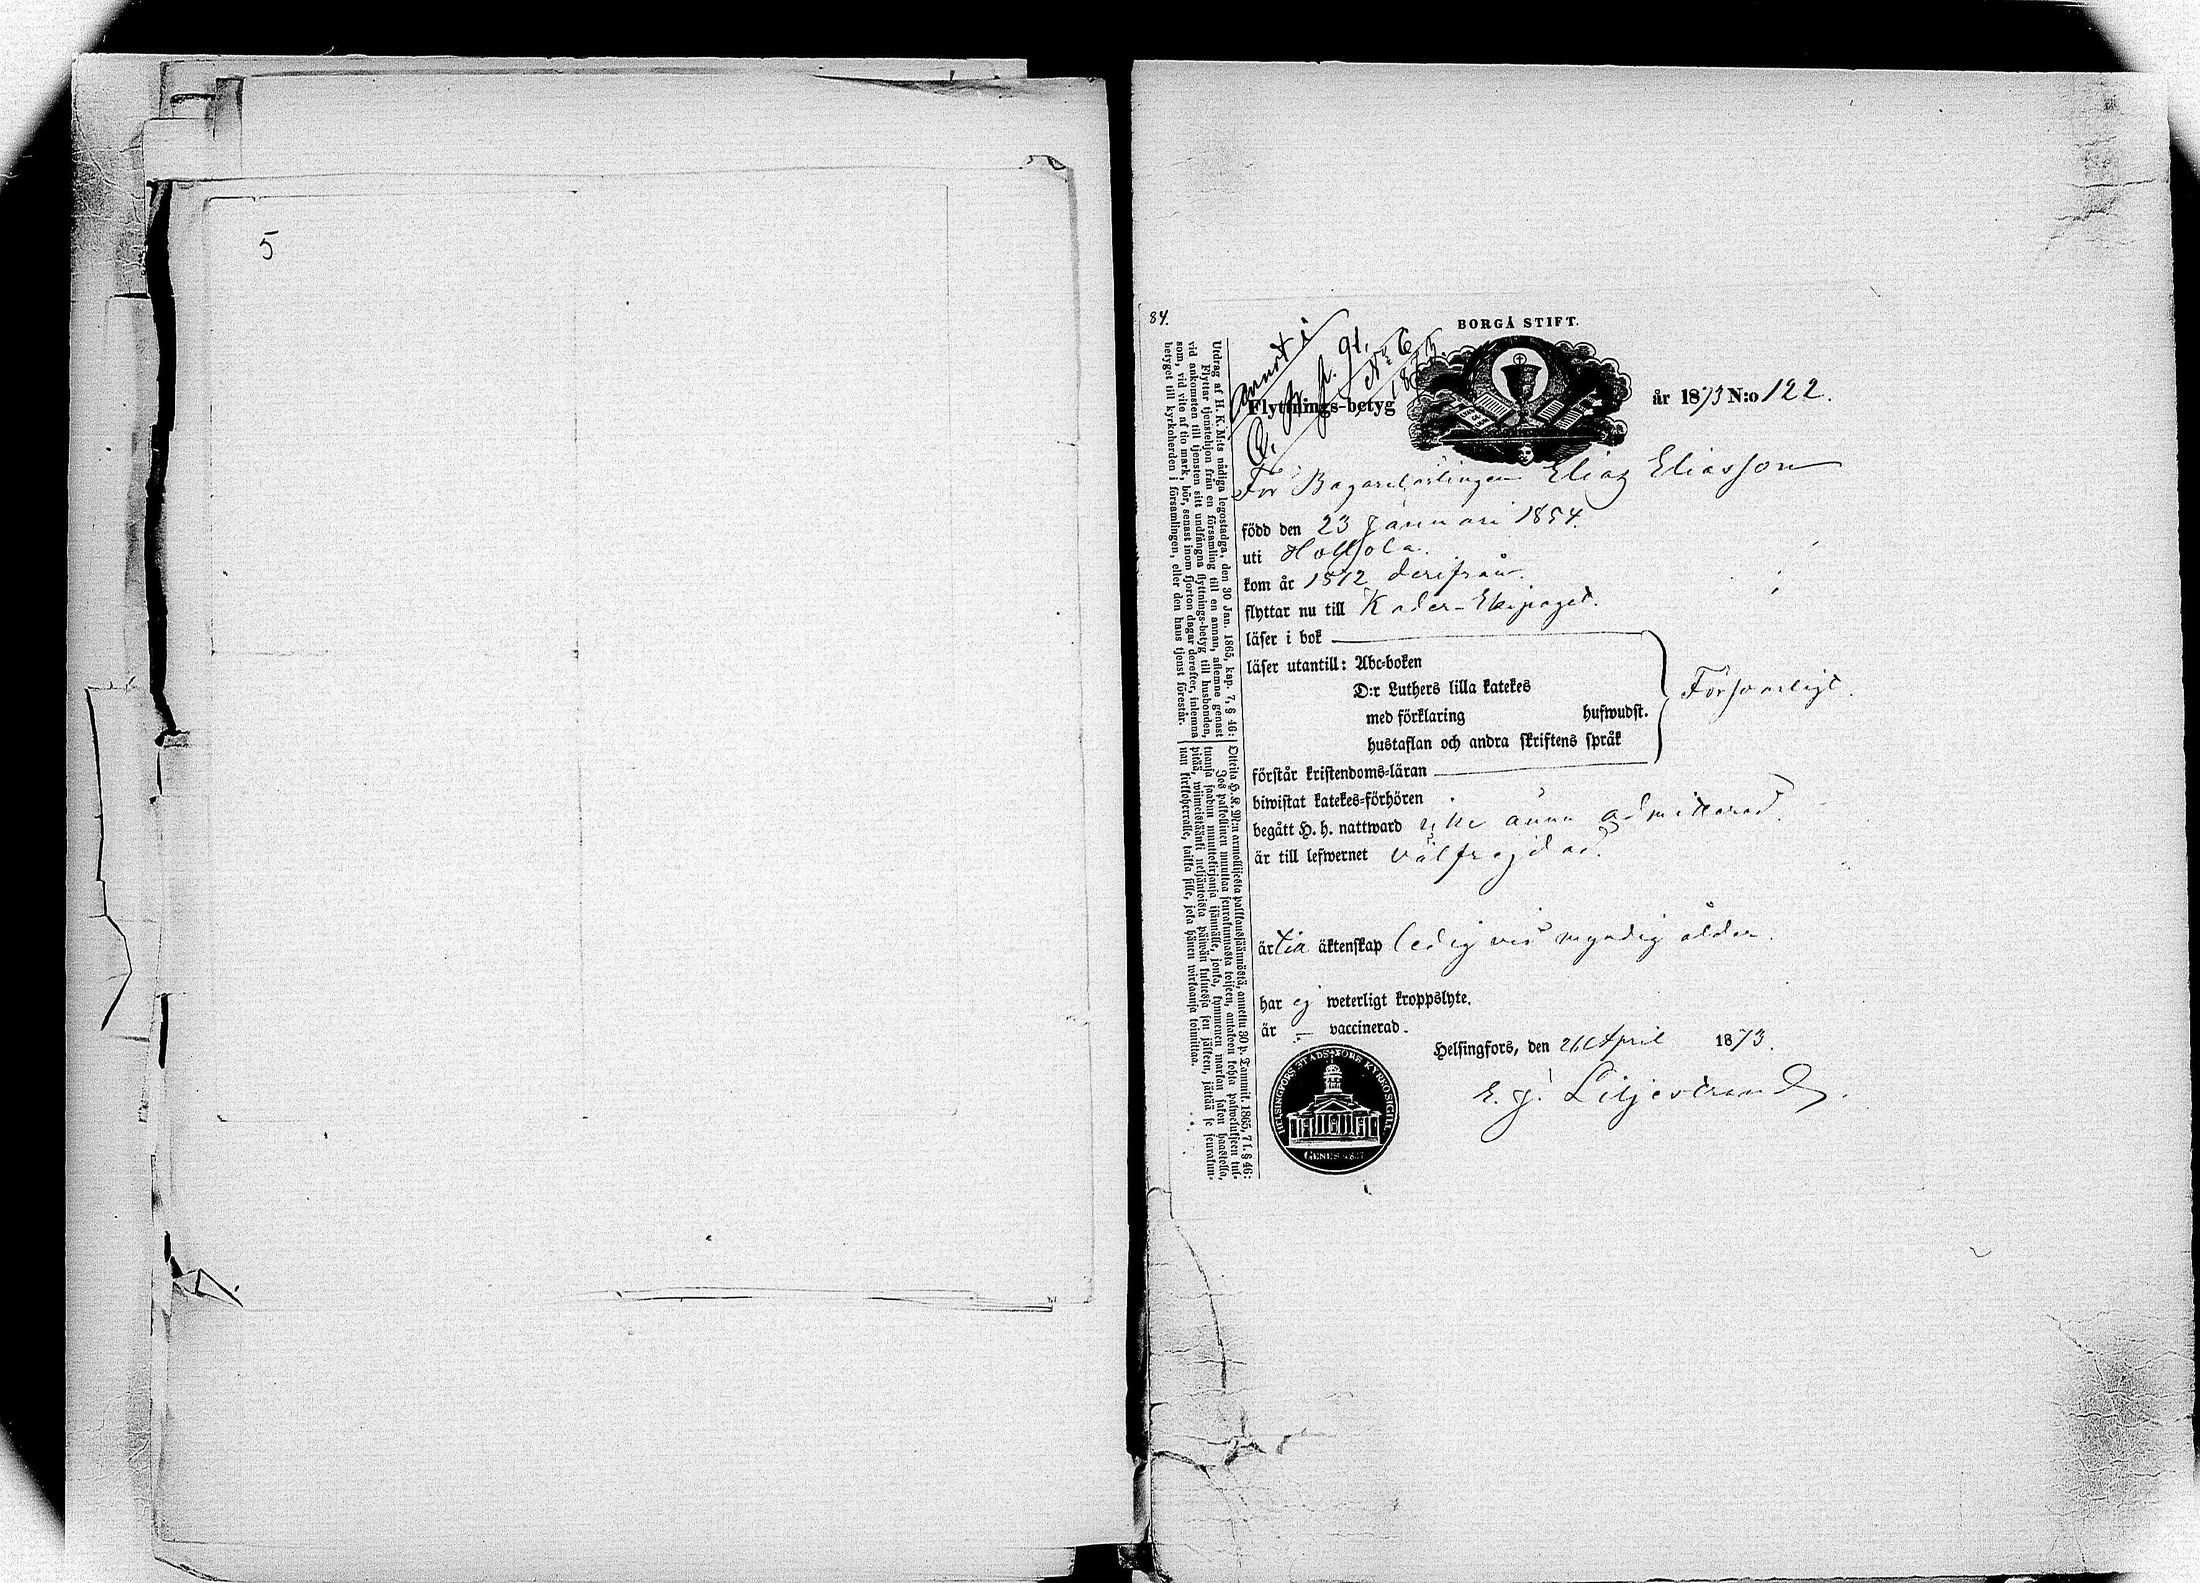 5
84.
BORGÅ STIFT.
infört i
p. 91.
No 6
1873.
Flyttnings-betyg
år 1873 N:o 122.
För Bagarelärlingen Eliaz Eliasson
född den 23 Januari 1854.
uti Hollola.
kom år 1872 derifrån.
flyttar nu till Kader-Ekipaget.
läser i bok
läser utantill: Abc-boken
D:r Luthers lilla katekes
med förklaring hufwudst.
hustaflan och andra skriftens språk
Försvarligt.
förstår kristendoms-läran
biwistat katekes-förhören
begått H. h. nattward icke ännu admitterad.
är till lefwernet välfrejdad.
är till äktenskap ledig vid myndig ålder.
har ej weterligt kroppslyte.
är — vaccinerad.
Helsingfors, den 26 April 1873.
E. J. Liljestrand.
HELSINGFORS STADS NORR KYRKOSIGILL
GENES
Utdrag af H. K. M:ts nådiga legostadga, den 30 Jan. 1865, kap. 7, § 46:
Flyttar tjenstehjon från en församling till en annan, aflemne genast
vid ankomsten till tjensten sitt undfångna flyttnings-betyg till husbonden,
som, vid vite af tio mark, bör, senast inom fjorton dagar derefter, inlemna
betyget till kyrkoherden i församlingen, eller den hans tjenst förestår.
Otteita H. K. M:n armollisesta palkkaussäännöstä, annettu 30 p. Tammik. 1865, 7 l. § 46:
Jos palkollinen muuttaa seurakunnasta toiseen, antakoon kohta palwelukseen tul-
tuansa saadun muuttokirjansa isännälle, jonka, kymmenen markan sakon haastolla,
pitää, wiimeistäänki neljäntoista päiwän kuluessa sen jälkeen, jättää se seurakun-
nan kirkkoherralle, taikka sille, joka hänen wirkaansa toimittaa.